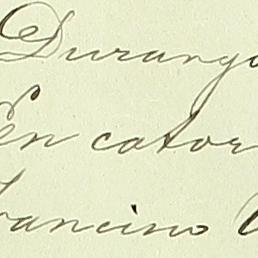 Durango
En cator
rancino